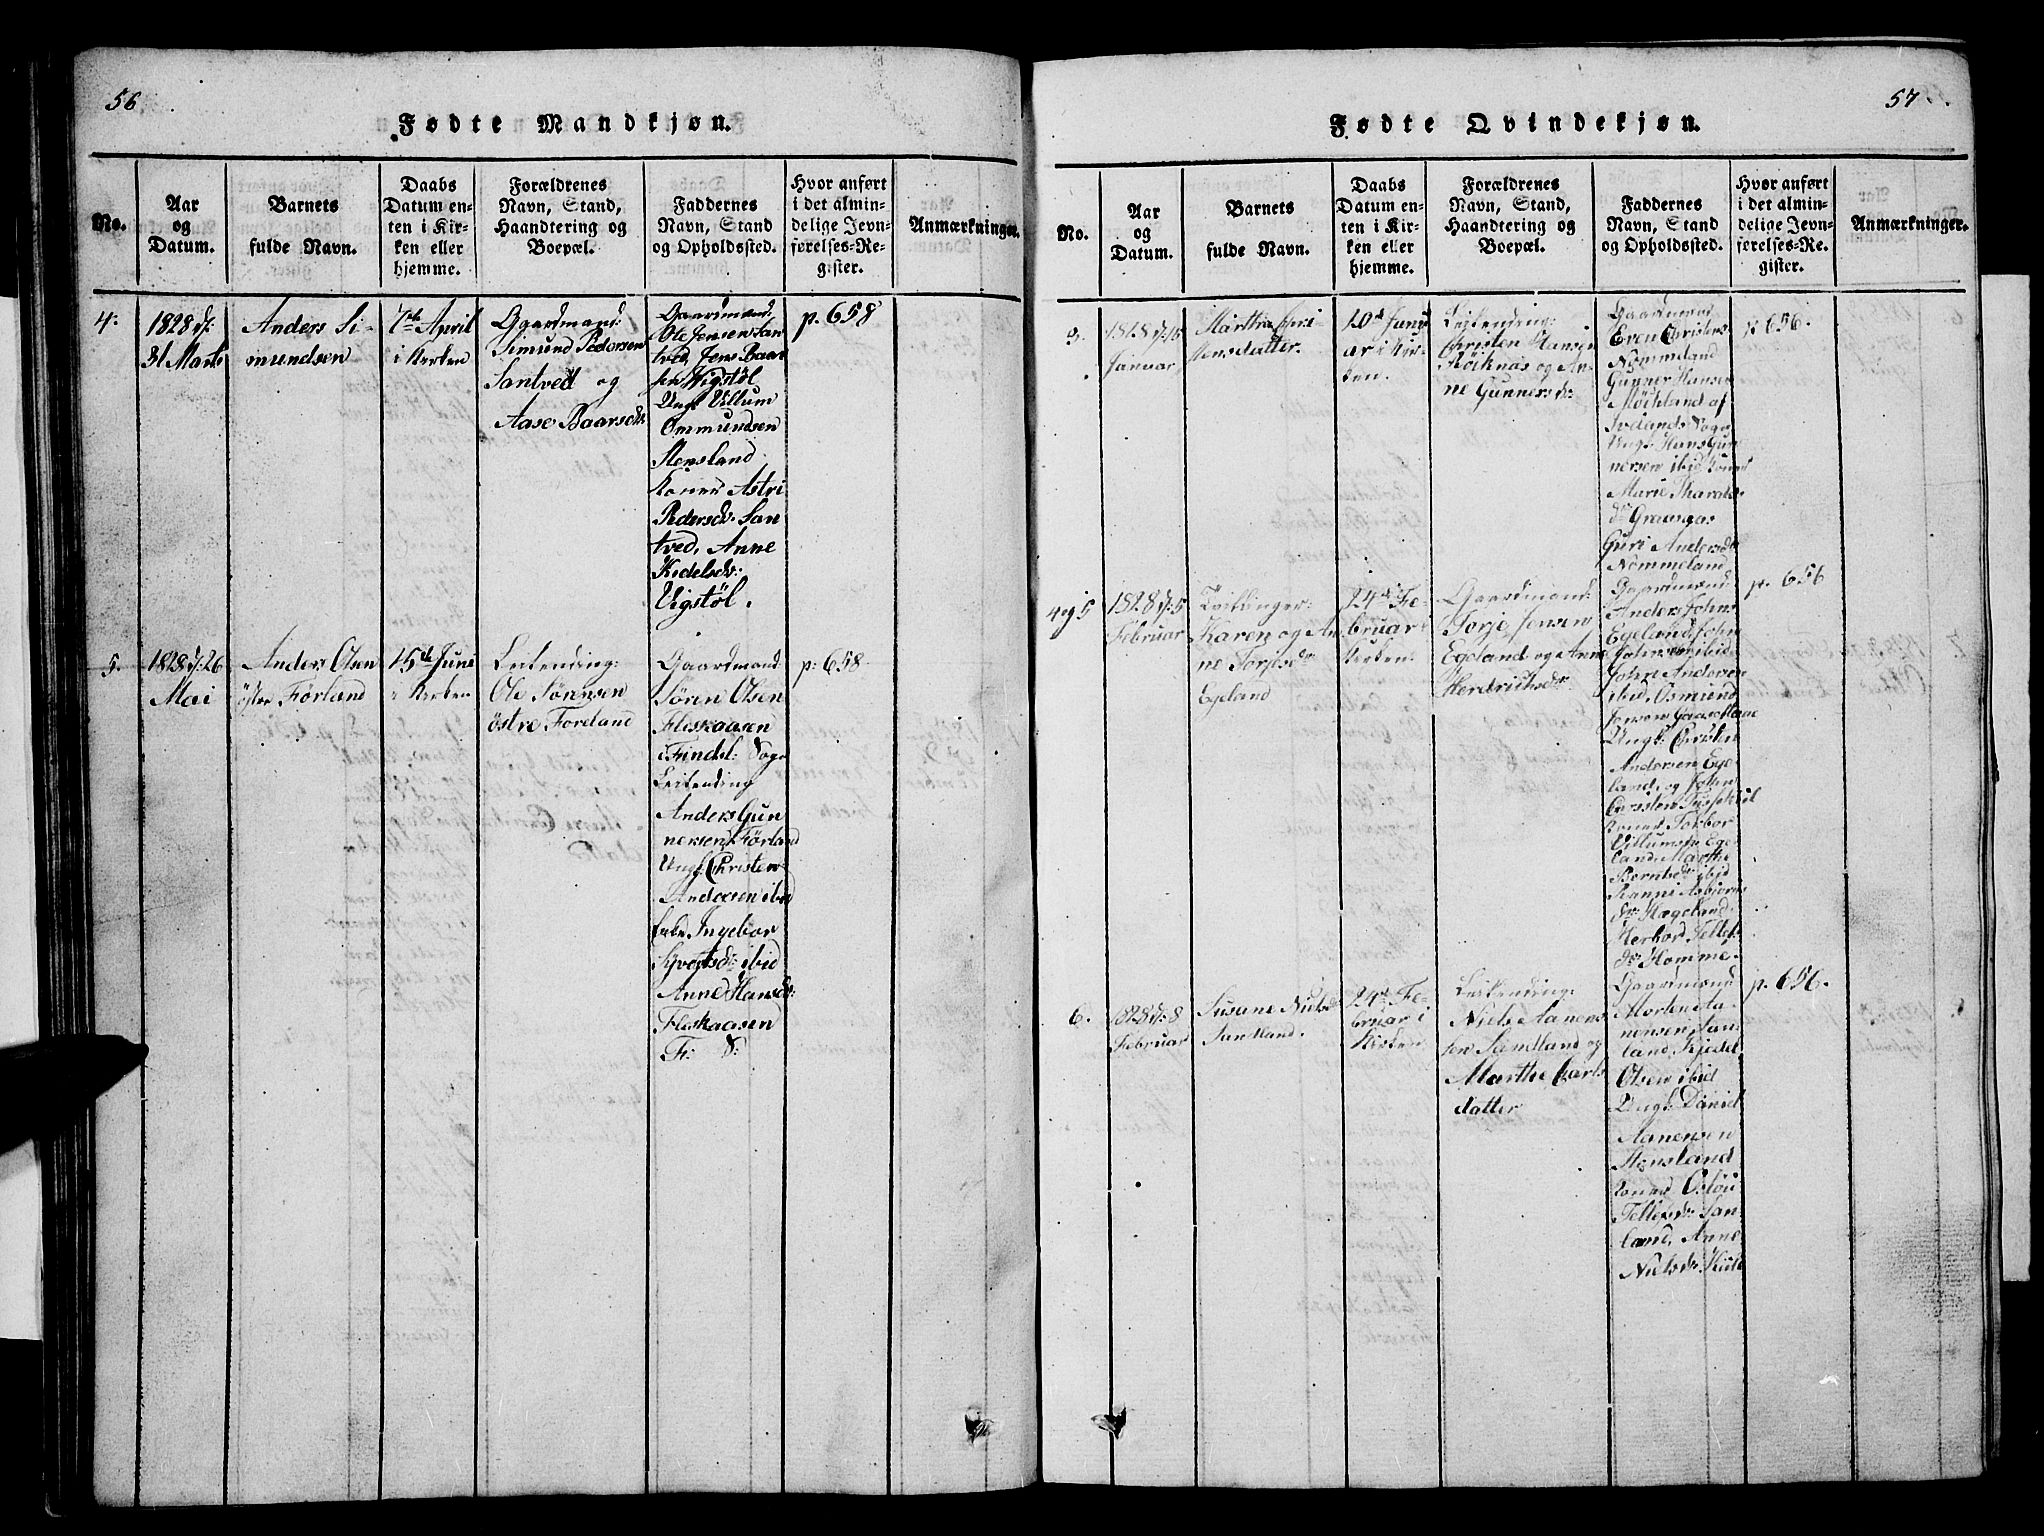 56.
Fødte Mandkjøn.
No.
Aar
og
Datum.
Barnets
fulde Navn.
Daabs
Datum en-
ten i Kir-
ken eller
hjemme.
Forældrenes
Navn, Stand,
Haandtering og
Boepæl.
Faddernes
Navn, Stand
og Opholdssted.
Hvor anført
i det almin-
delige Jevn-
førelses-Re-
gister.
Anmærkninger.
4.
1828 d:
31 Marts
Anders Si-
mundsen
7de April
i Kirken
Gaardmand:
Simund Pedersen
Santved og
Aase Baarsdr
Gaardmænd:
Ole Jensen San
tved, Jens Baar
sen Vigstøl
Ungk Villum
Ommundsen
Stensland
Koner Astri
Pedersdr: San
tved, Anne
Kedelsdr:
Vigstøl.
p. 658
5.
1828 d: 26
Mai
Anders Olsen
östre Förland
15de Juni
i Kirken
Leilending:
Ole Sørensen
östre Foreland
Gaardmand
Søren Olsen
Fleskaasen
i Findsl: Sogn
Leilending
Anders Gun
nersen Förland
Ungk: Christen
Andersen ibid
Ingebor
Syvertsdr: ibid
Anne Hansdr:
Fleskaasen
F: S:
p: 658
57
Fødte Qvindekjøn.
No.
Aar
og
Datum.
Barnets
fulde Navn.
Daabs
Datum en-
ten i Kir-
ken eller
hjemme.
Forældrenes
Navn, Stand,
Haandtering og
Boepæl.
Faddernes
Navn, Stand
og Opholdssted.
Hvor anført
i det almin-
delige Jevn-
førelses-Re-
gister.
Anmærkninger.
3.
1828 d: 15
Januar
Martha Chri-
stensdatter.
20de Janu
ar i Kir-
ken.
Leilending:
Christen Hansen
Röiknas og An-
ne Gunnersdr:
Gaardmænd
Even Christens
Nommeland
Gunner Hansen
Möchland af
Ivelands Sogn
Ungk: Hans Gun
nersen ibid Koner
Marie Tharals
dr Greusgas
Guri Andersdr
Nommeland
p 656.
4 og 5
1828 d: 5
Februar
Tvillinger:
Karen og An
ne Torjesdr
Egeland
24de Fe-
bruar i
Kirken.
Gaardmand:
Torje Jensen
Egeland og Anne
Hendrichsdr:
Gaardmænd:
Anders Johns
Egeland, John
Johnsen ibid
John Andersen
ibid, Osmund
Jensen
Ungk: Christen
Andersen Ege-
land, og John
Torbor
Villumsdr Ege-
land, Marthe
Berntsdr ibid
Ranni Asbjørns
dr: Hægeland,
Herbor Tellef
dr: Homme.
p. 656
6.
1828 d: 8
Februar
Susane Nielsdr
Sandland.
24de Fe-
bruar i
Kirken
Leilending:
Niels Aanen
sen Sandland og
Marthe Carls
datter
Gaardmænd:
Morten Aa-
nensen San
land, Kjedel
Olsen ibid
Ungk: Daniel
Aanensen
Stensland
Koner Oslöu
Tellefsdr: San-
land, Anne
Nielsdr: Kiile
p. 656.